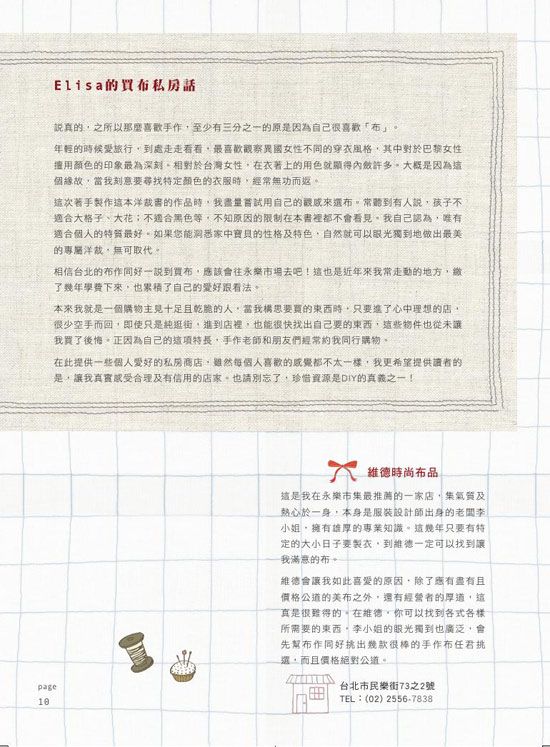 Elisa的買布私房話
說真的，之所以那麼喜歡手作，至少有三分之一的原是因為自己很喜歡「布」。
年輕的時候愛旅行，到處走走看看，最喜歡觀察異國女性不同的穿衣風格，其中對於巴黎女性
擅用顏色的印象最為深刻。相對於台灣女性，在衣著上的用色就顯得內斂許多。大概是因為這
個緣故，當我刻意要尋找特定顏色的衣服時，經常無功而返。
這次著手製作這本洋裁書的作品時，我盡量嘗試用自己的觀感來選布。常聽到有人說，孩子不
適合大格子、大花；不適合黑色等，不知原因的限制在本書裡都不會看見。我自己認為，唯有
適合個人的特質最好。如果您能洞悉家中寶貝的性格及特色，自然就可以眼光獨到地做出最美
的專屬洋裁，無可取代。
相信台北的布作同好一説到買布，應該會往永樂市場去吧！這也是近年來我常走動的地方，繳
了幾年學費下來，也累積了自己的愛好跟看法。
本來我就是一個購物主見十足且乾脆的人，當我構思要買的東西時，只要進了心中理想的店，
很少空手而回，即使只是純逛街，進到店裡，也能很快找出自己要的東西，這些物件也從未讓
我買了後悔。正因為自己的這項特長，手作老師和朋友們經常約我同行購物。
在此提供一些個人愛好的私房商店，雖然每個人喜歡的感覺都不太一樣，我更希望提供讀者的
是，讓我真實感受合理及有信用的店家。也請別忘了，珍惜資源是DIY的真義之一！
維德時尚布品
這是我在永樂市集最推薦的一家店，集氣質及
熱心於一身，本身是服裝設計師出身的老闆李
小姐，擁有雄厚的專業知識。這幾年只要有特
定的大小日子要製衣，到維德一定可以找到讓
我滿意的布。
維德會讓我如此喜愛的原因，除了應有盡有且
價格公道的美布之外，還有經營者的厚道，這
真是很難得的。在維德，你可以找到各式各樣
所需要的東西，李小姐的眼光獨到也廣泛，會
先幫布作同好挑出幾款很棒的手作布任君挑
選，而且價格絕對公道。
台北市民樂街73之2號
TEL：(02) 2556-7838
page
10